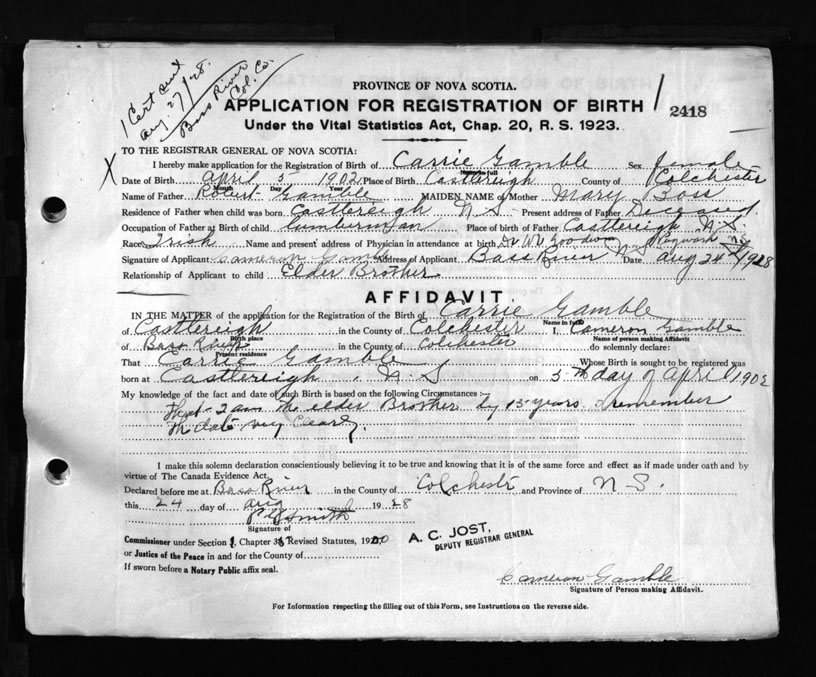 1 Cert sent
Aug. 27/28.
Bass River
Col. Co.
PROVINCE OF NOVA SCOTIA.
APPLICATION FOR REGISTRATION OF BIRTH / 2418
Under the Vital Statistics Act, Chap. 20, R. S. 1923.
TO THE REGISTRAR GENERAL OF NOVA SCOTIA:
X
I hereby make application for the Registration of Birth of Carrie Gamble Sex female
Name in full
Date of Birth April 5 1902 Place of Birth Castlereigh County of Colchester
Month Day Year
Name of Father Robert Gamble MAIDEN NAME of Mother Mary
Residence of Father when child was born Castlereigh N S Present address of Father Deceased.
Occupation of Father at Birth of child Lumberman Place of birth of Father Castlereigh N.S.
Race Irish Name and present address of Physician in attendance at birth Dr
Signature of Applicant Cameron Gamble Address of Applicant Bass River Date Aug 24th 1928
Relationship of Applicant to child Elder Brother
AFFIDAVIT
IN THE MATTER of the application for the Registration of the Birth of Carrie Gamble
Name in full
of Castlereigh in the County of Colchester I, Cameron Gamble
Birth place Name of person making Affidavit
of Bass River in the County of Colchester do solemnly declare:
Present residence
That Carrie Gamble Whose Birth is sought to be registered was
born at Castlereigh, N S on 5th day of April 1902
My knowledge of the fact and date of such Birth is based on the following Circumstances:—
That I am the elder Brother by 15 years & remember
the date very clearly.
I make this solemn declaration conscientiously believing it to be true and knowing that it is of the same force and effect as if made under oath and by
virtue of The Canada Evidence Act.
Declared before me at Bass River in the County of Colchester and Province of N S.
this 24 day of Aug 1928
Smith
Signature of
Commissioner under Section 1, Chapter 38 Revised Statutes, 1900
or Justice of the Peace in and for the County of
If sworn before a Notary Public affix seal.
A. C. JOST,
DEPUTY REGISTRAR GENERAL
Cameron Gamble
Signature of Person making Affidavit.
For Information respecting the filling out of this Form, see Instructions on the reverse side.